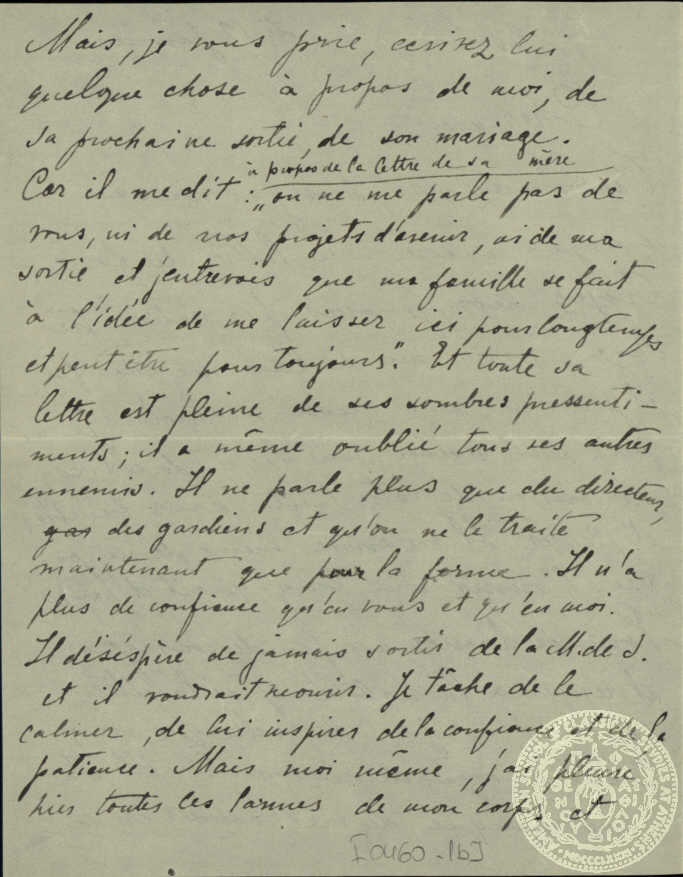 Mais, je vous prie, ecrivez lui
quelque chose à propos de moi, de
sa prochaine sortie, de son mariage.
à propos de la lettre de sa mère
Car il me dit: „on ne me parle pas de
vous, ni de nos projets d'avenir, ni de ma
sortie et j'entrevois que ma famille se fait
à l'idée de me laisser ici pour longtemps
et peut être pour toujours." Et toute sa
lettre est pleine de ses sombres pressenti-
ments; il a même oublié tous ses autres
ennemis. Il ne parle plus que du directeur,
gar des gardiens et qu'on ne le traite
maintenant que pour la forme. Il n'a
plus de confience qu'en vous et qu'en moi.
Il désésperè de jamais sortir de la M. de S.
et il voudrait mourir. Je tâche de le
calmer, de lui inspirer de la confience et de la
patience. Mais moi même, j'ai pleuré
hier toutes les larmes de mon corps et
[0460-1b]